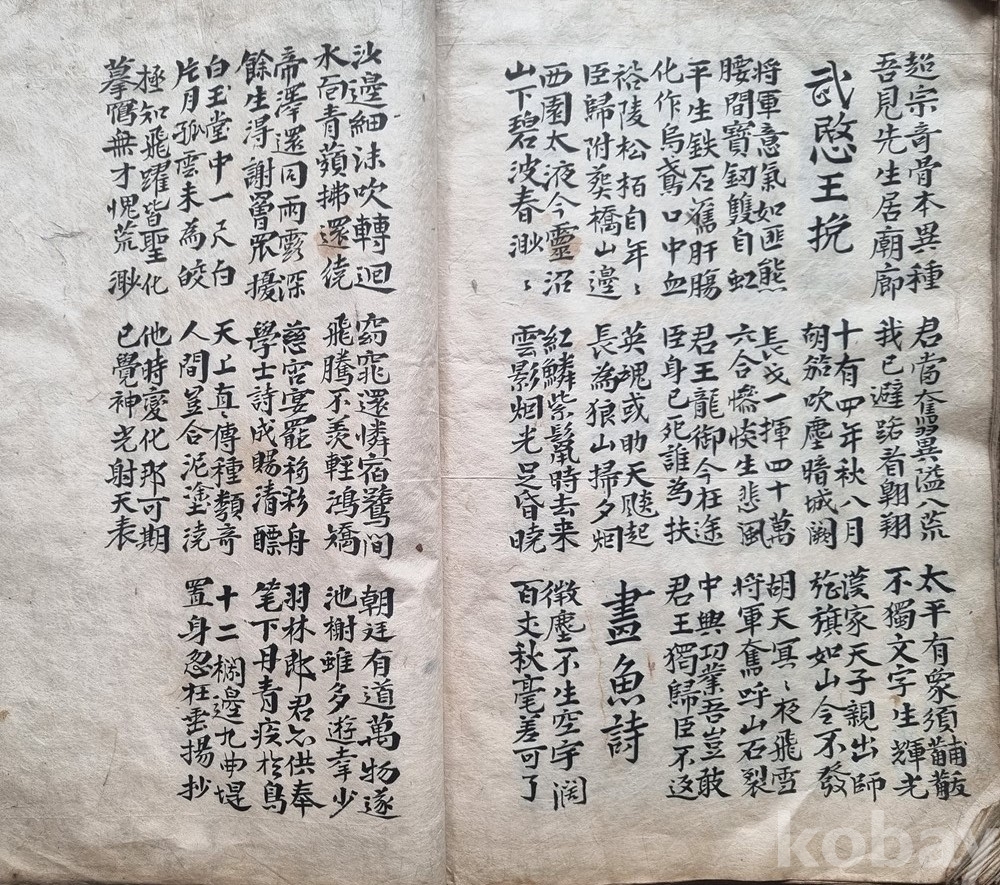 超宗奇骨本異種
吾見先生居廟廊
君當奮翼溢八荒
我已避路看翱翔
太平有象須黼黻
不獨文字生輝光
武愍王挽
十有四年秋八月
胡笳吹塵暗城闕
漢家天子親出師
旌旗如山令不發
將軍意氣如匪熊
腰間寶釰雙白虹
長戈一揮四十萬
六合慘惔生悲風
胡天冥〻夜飛雪
將軍奮呼山石裂
平生鐵石舊肝腸
化作烏鳶口中血
君王龍御今枉途
臣身已死誰為扶
中興功業吾豈敢
君王獨歸臣不返
裕陵松栢自年〻
臣歸附葬橋山邊
英魂或助天飇起
長為狼山掃夕烟
畫魚詩
西園太液今靈沼
山下碧波春渺〻
紅鱗紫鬣時去来
雲影烟光足昏曉
微塵不生空宇濶
百丈秋毫差可了
沙邊細沫吹轉迴
水面青蘋拂還繞
窈窕還憐宿鷺間
飛騰不羨輕鴻矯
朝廷有道萬物遂
池榭雖多遊幸少
帝澤還同雨露深
餘生得謝罾罛擾
慈宮宴罷移彩舟
學士詩成賜清醥
羽林郎君亦供奉
筆下丹青疾於鳥
白玉堂中一尺白
片月孤雲未為皎
天上真傳種類奇
人間豈合泥塗澆
十二欄邊九曲堤
置身忽在垂楊抄
極知飛躍皆聖化
摹寫無才愧荒渺
他時變化那可期
已覺神光射天表
kobay